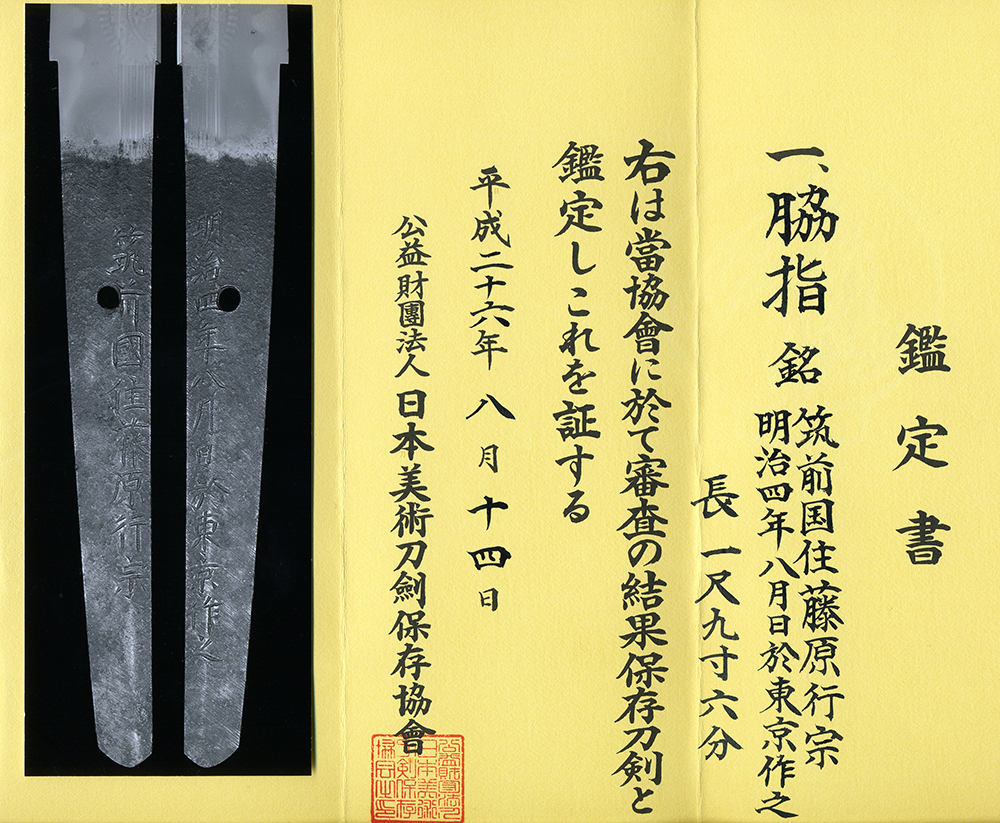 鑑定書
一、脇指 銘 筑前国住藤原行宗
明治四年八月日於東京作之
長 一尺九寸六分
右は當協會に於て審査の結果保存刀剣と
鑑定しこれを証する
平成二十六年 八月十四日
公益財團法人 日本美術刀劍保存協會
明治四年八月日於東京作之
筑前國住藤原行宗